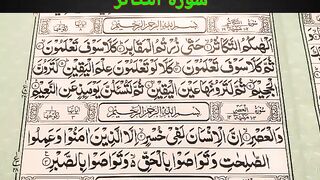 سورة التكاثر
بسم الله الرحمن الرحيم
اَلْهٰىكُمُ التَّكَاثُرُ حَتّٰى زُرْتُمُ الْمَقَابِرَ كَلَّا سَوْفَ تَعْلَمُوْنَ
ثُمَّ كَلَّا سَوْفَ تَعْلَمُوْنَ كَلَّا لَوْ تَعْلَمُوْنَ عِلْمَ الْيَقِيْنِ لَتَرَوُنَّ
الْجَحِيْمَ ثُمَّ لَتَرَوُنَّهَا عَيْنَ الْيَقِيْنِ ثُمَّ لَتُسْـَٔلُنَّ يَوْمَىِٕذٍ عَنِ النَّعِيْمِ
بسم الله الرحمن الرحيم
وَالْعَصْرِ اِنَّ الْاِنْسَانَ لَفِيْ خُسْرٍ اِلَّا الَّذِيْنَ اٰمَنُوْا وَعَمِلُوا
الصّٰلِحٰتِ وَتَوَاصَوْا بِالْحَقِّ وَتَوَاصَوْا بِالصَّبْرِ